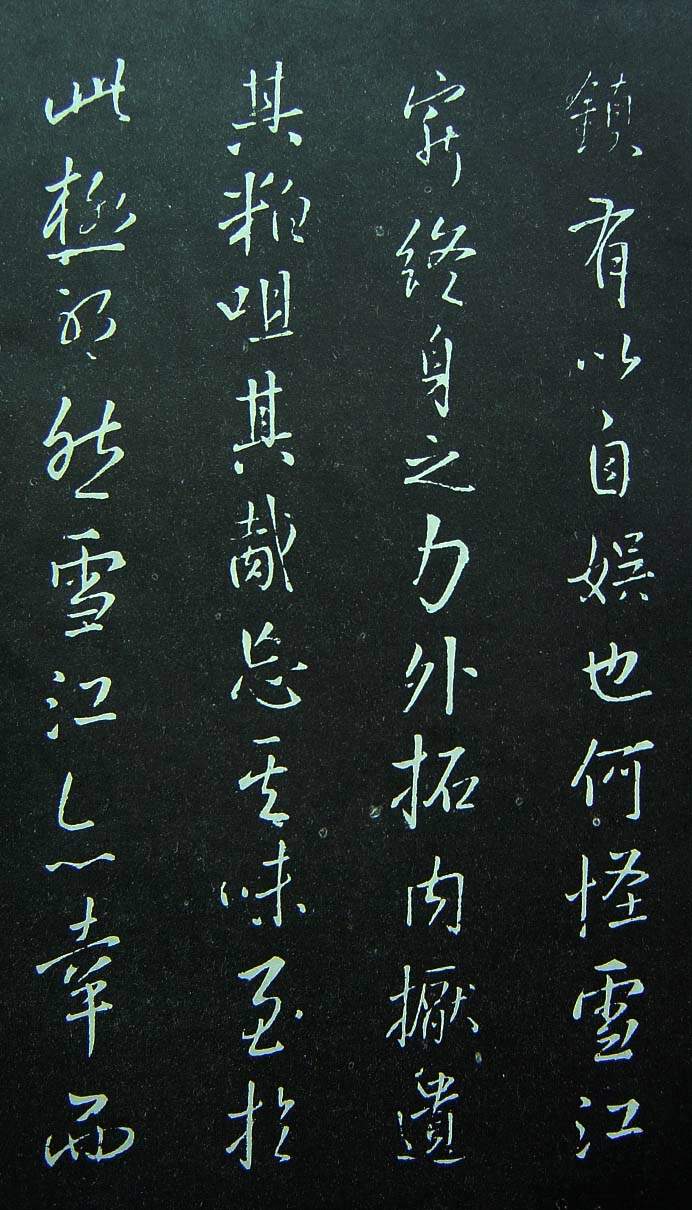 鎮有以自娛也何怪雪江
窮終身之力外拓内擫遺
其粗咀其胾忘其味至於
此極耶然雪江亦幸而